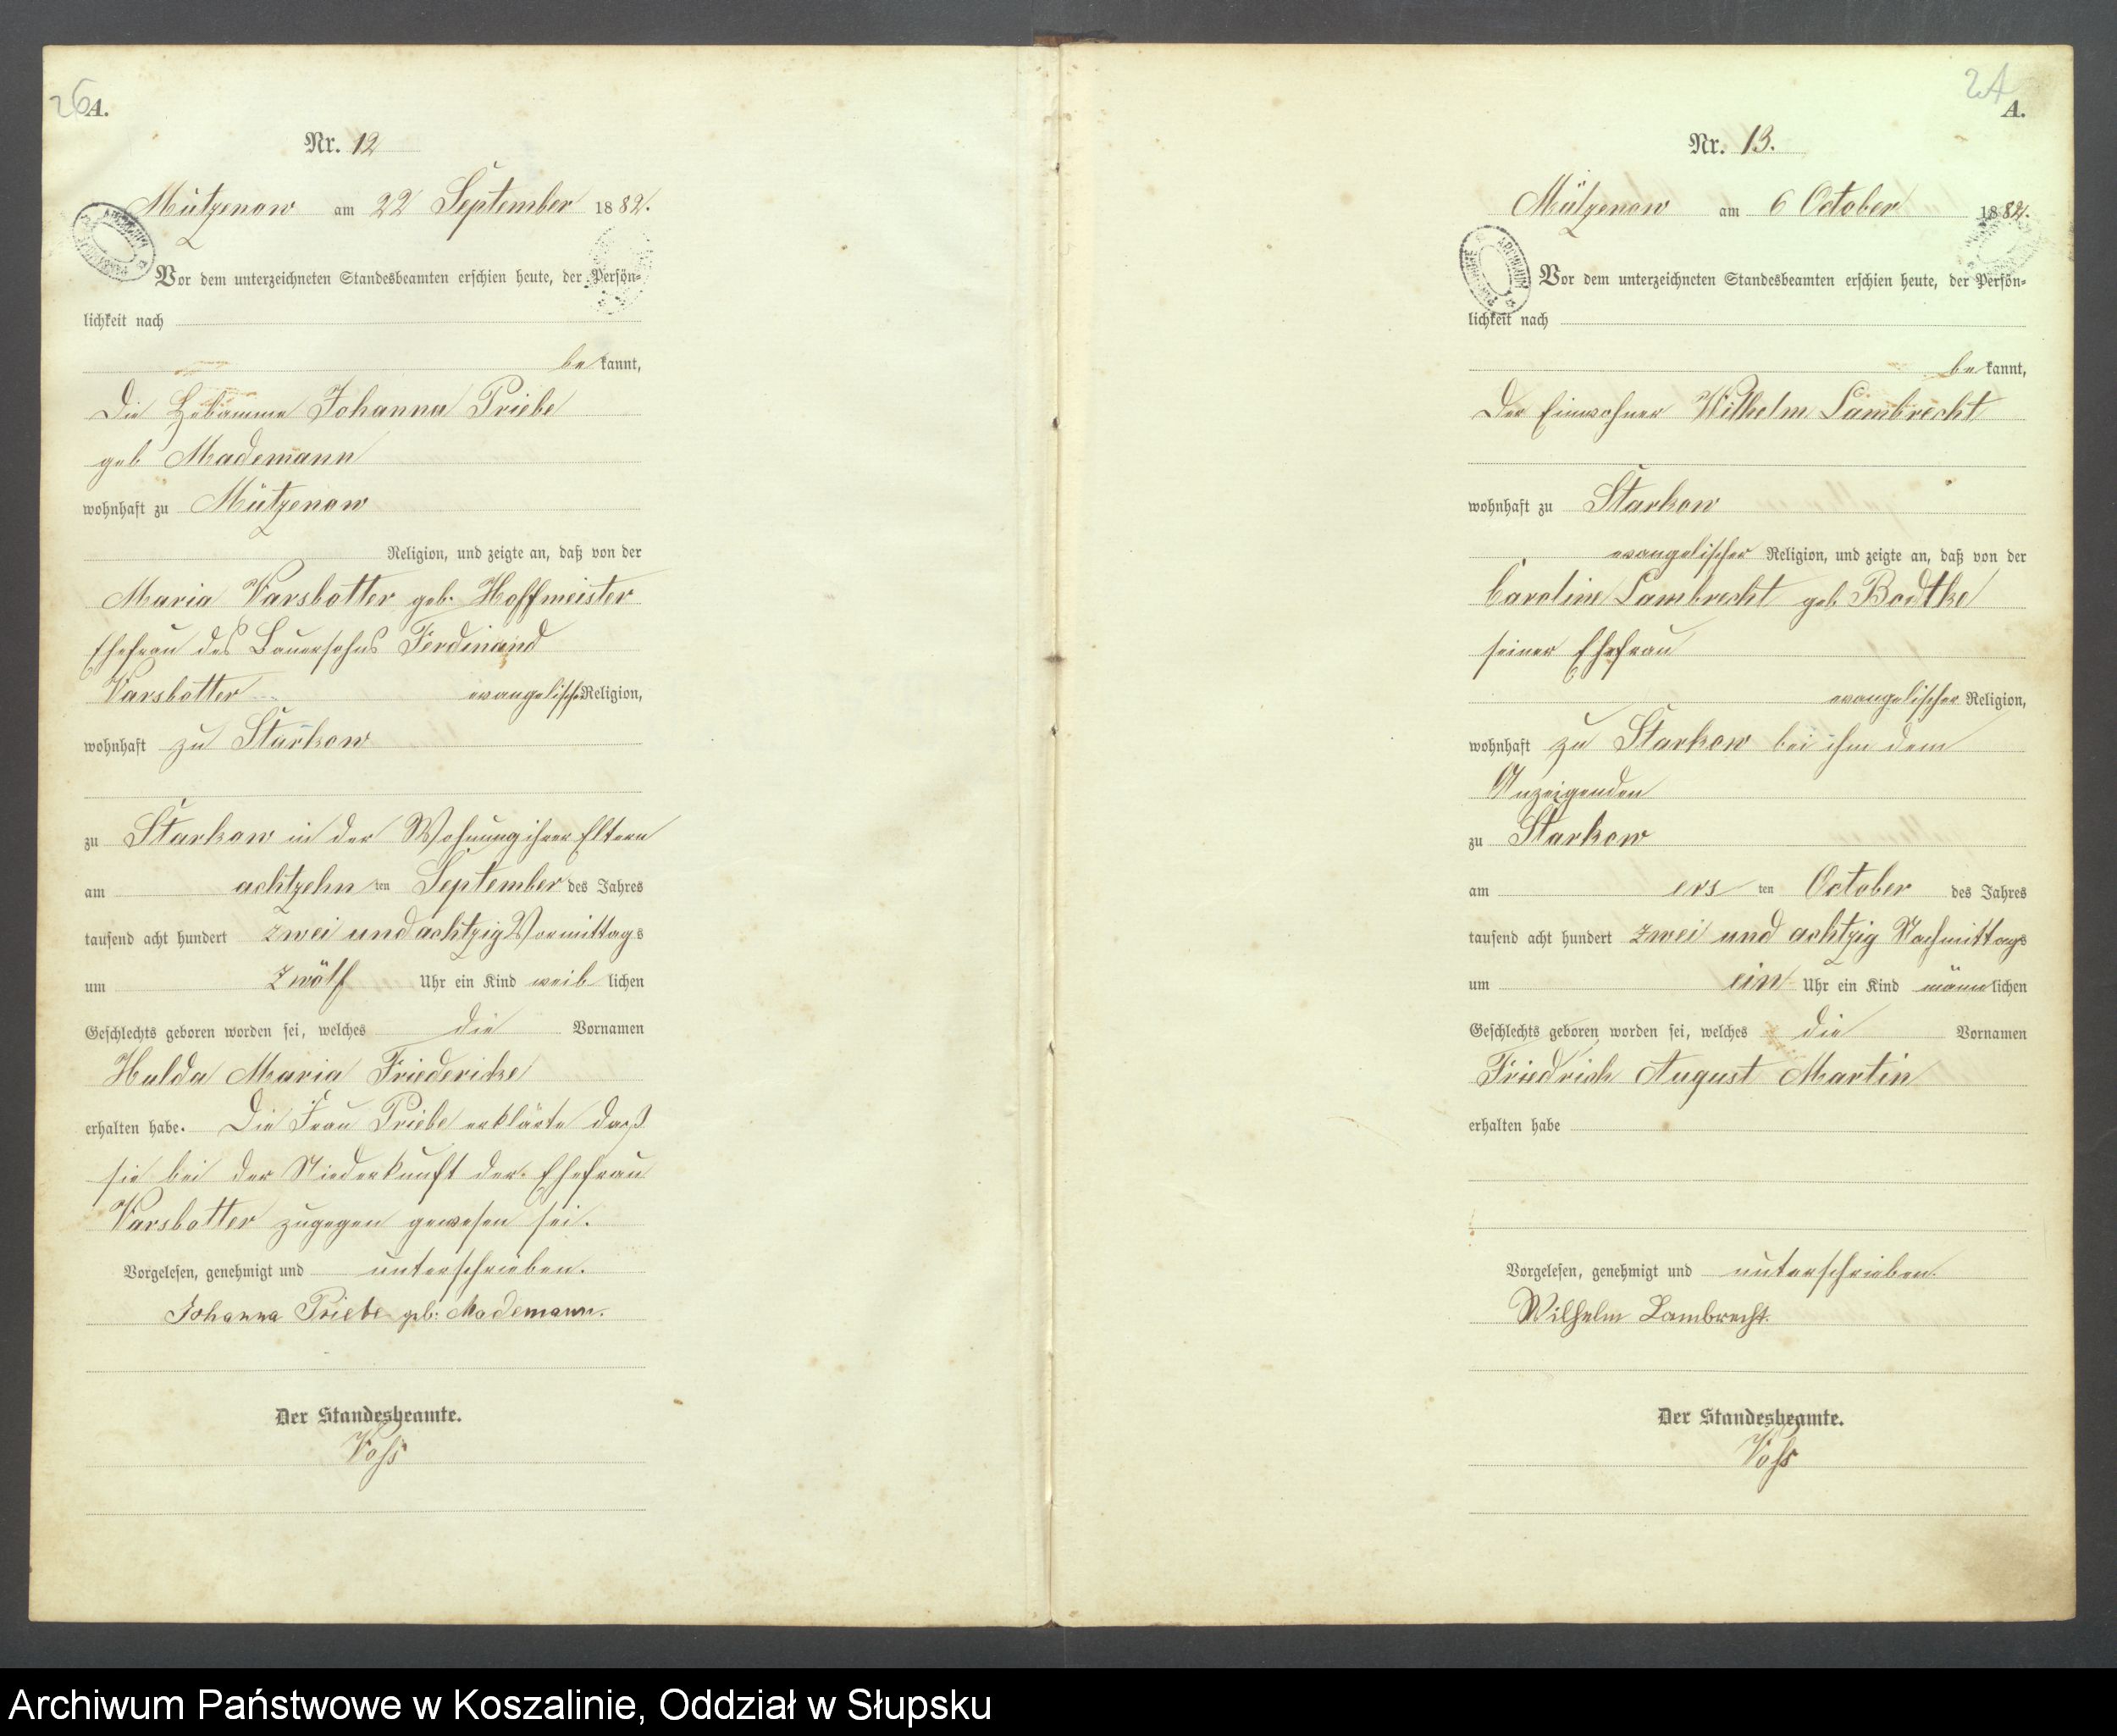 26
A.
Nr. 12
Mützenow am 22 September 1882.
Vor dem unterzeichneten Standesbeamten erschien heute, der Persön-
lichkeit nach
be kannt,
Die Hebamme Johanna Priebe
geb Mademann
wohnhaft zu Mützenow
Religion, und zeigte an, daß von der
Maria Varsbotter geb. Hoffmeister
Ehefrau des Bauersohns Ferdinand
Varsbotter evangelischer Religion,
wohnhaft zu Starkow
zu Starkow in der Wohnung ihrer Eltern
am achtzehn ten September des Jahres
tausend acht hundert zwei und achtzig Vormittags
um zwölf Uhr ein Kind weib lichen
Geschlechts geboren worden sei, welches die Vornamen
Hulda Maria Friedericke
erhalten habe. Die Frau Priebe erklärte daß
sie bei der Niederkunft der Ehefrau
Varsbotter zugegen gewesen sei.
Vorgelesen, genehmigt und unterschrieben.
Johanna Priebe geb: Mademann.
Der Standesbeamte.
Voß
A.
Nr. 13.
Mützenow am 6 October 1882.
Vor dem unterzeichneten Standesbeamten erschien heute, der Persön-
lichkeit nach
be kannt,
Der Einwohner Wilhelm Lambrecht
wohnhaft zu Starkow
evangelischer Religion, und zeigte an, daß von der
Caroline Lambrecht geb Badtke
seiner Ehefrau
evangelischer Religion,
wohnhaft zu Starkow bei ihm dem
Anzeigenden
zu Starkow
am ers ten October des Jahres
tausend acht hundert zwei und achtzig Nachmittags
um ein Uhr ein Kind männlichen
Geschlechts geboren worden sei, welches die Vornamen
Friedrich August Martin
erhalten habe
Vorgelesen, genehmigt und unterschrieben.
Wilhelm Lambrecht.
Der Standesbeamte.
Voß
Archiwum Państwowe w Koszalinie, Oddział w Słupsku